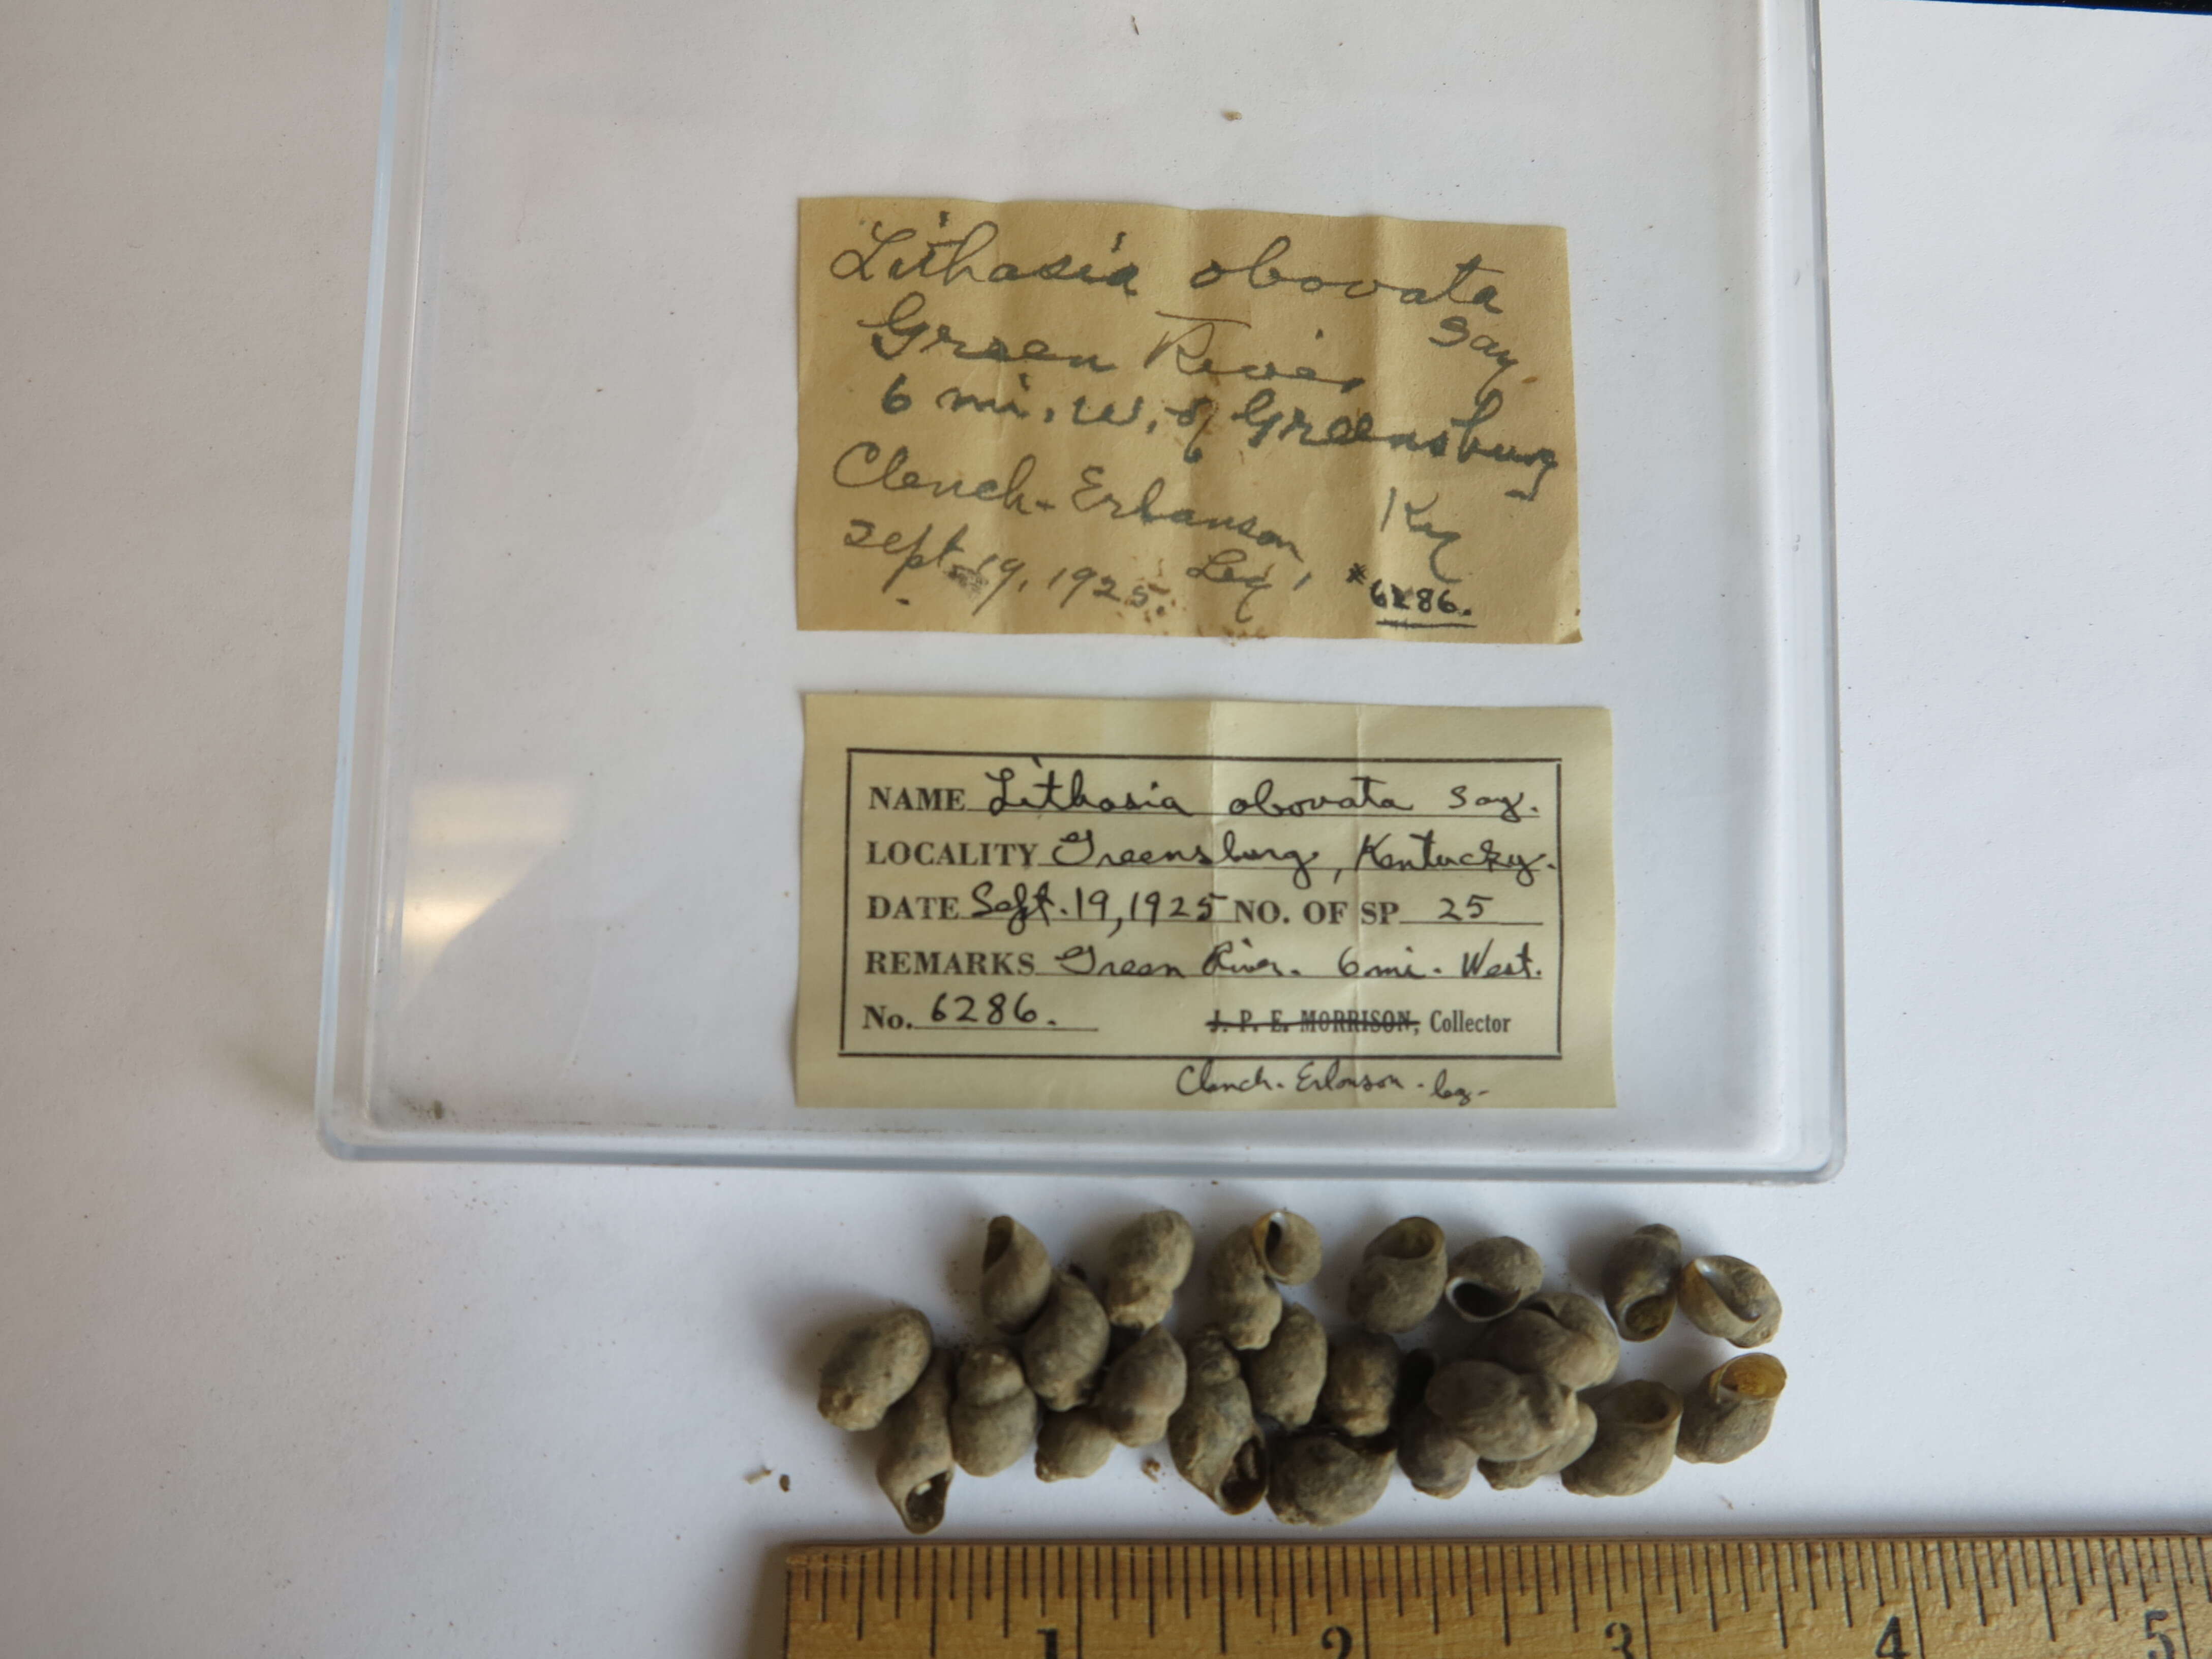 Lithasia obovata
Say.
Green River
6 mi. W. of Greensburg
Ky
Clench-Erbanson
Leg,
Sept. 19, 1925.
*6286.
NAME Lithasia obovata Say.
LOCALITY Greensburg, Kentucky.
DATE Sept. 19, 1925 NO. OF SP 25
REMARKS Green River. 6 mi. West.
No. 6286. J. P. E. MORRISON, Collector
Clench-Erbonson-leg-
1 2 3 4 5